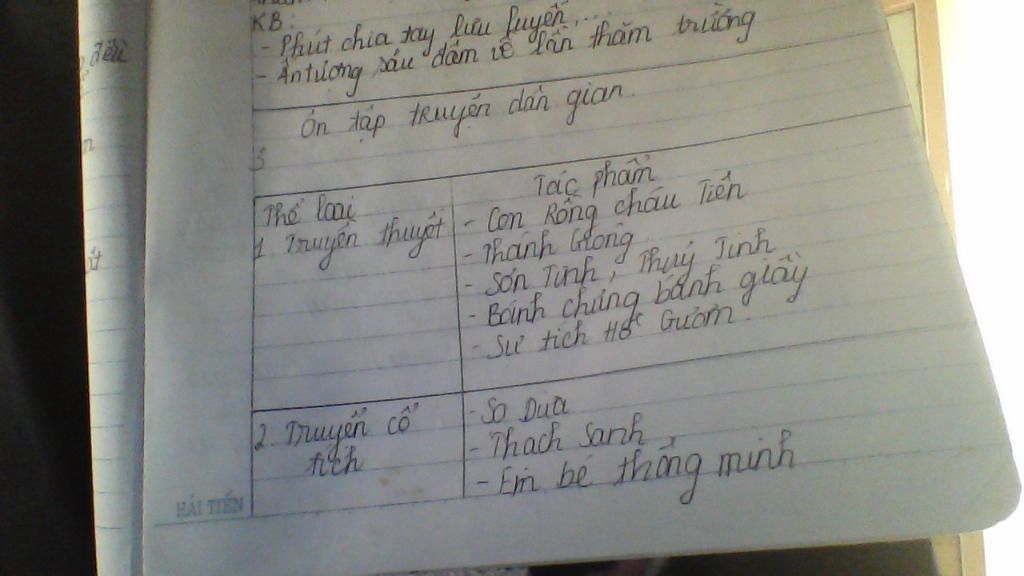 KB:
- Phút chia tay lưu luyến...
- Ấn tượng sâu đậm về lần thăm trường
Ôn tập truyện dân gian
Thể loại
Tác phẩm
1. Truyền thuyết
- Con Rồng cháu Tiên
- Thánh Gióng
- Sơn Tinh, Thuỷ Tinh
- Bánh chưng bánh giầy
- Sự tích Hồ Gươm
2. Truyện cổ
tích
- Sọ Dừa
- Thạch Sanh
- Em bé thông minh
HẢI TIẾN
đều